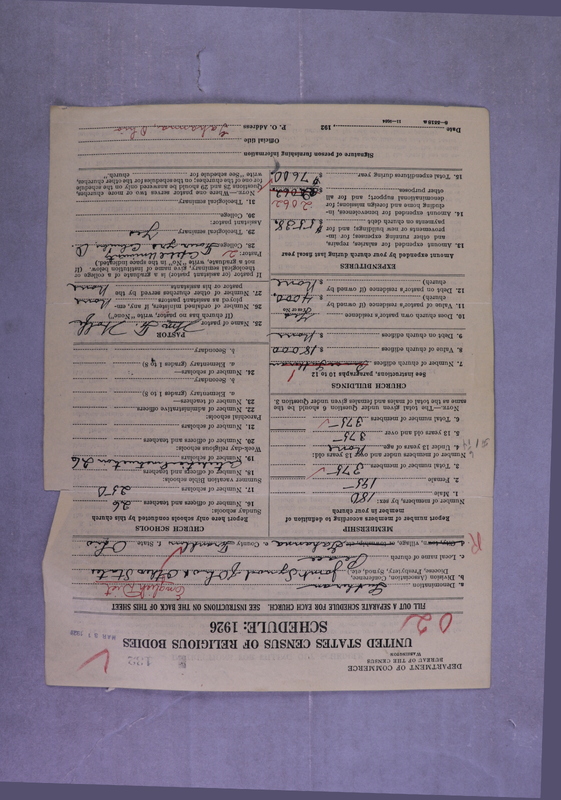 DEPARTMENT OF COMMERCE
BUREAU OF THE CENSUS
WASHINGTON
UNITED STATES CENSUS OF RELIGIOUS BODIES
SCHEDULE: 1926
FILL OUT A SEPARATE SCHEDULE FOR EACH CHURCH. SEE INSTRUCTIONS ON THE BACK OF THIS SHEET
a. Denomination Lutheran
English Dist
b. Division (Association, Conference, Diocese, Presbytery, Synod, etc.) Joint Synod of Ohio & Other States
c. Local name of church Peace
village, Gahanna e. County Franklin f. State Ohio
MEMBERSHIP
Report number of members according to definition of member in your church
Number of members, by sex:
1. Male 180
2. Female 195
3. Total number of members 375
Number of members under and over 13 years old:
4. Under 13 years of age None
5. 13 years old and over 375
6. Total number of members 375
NOTE.—The total given under Question 6 should be the same as the total of males and females given under Question 3.
CHURCH BUILDINGS
See instructions, paragraphs 10 to 12
7. Number of church edifices 1
8. Value of church edifices $ 18000
9. Debt on church edifices $ None
10. Does church own pastor's residence Yes
11. Value of pastor's residence (if owned by church) $ 4000
12. Debt on pastor's residence (if owned by church) $ None
EXPENDITURES
Amount expended by your church during last fiscal year
13. Amount expended for salaries, repairs, and other running expenses; for improvements or new buildings; for payments on church debt $ 5538
14. Amount expended for benevolences, including home and foreign missions; for denominational support; and for all other purposes 2062
15. Total expenditures during year $ 7600
CHURCH SCHOOLS
Report here only schools conducted by this church
Sunday schools:
16. Number of officers and teachers 26
17. Number of scholars 250
Summer vacation Bible schools:
18. Number of officers and teachers
19. Number of scholars
Week-day religious schools:
20. Number of officers and teachers
21. Number of scholars
Parochial schools:
22. Number of administrative officers
23. Number of teachers—
a. Elementary (grades 1 to 8)
b. Secondary
24. Number of scholars—
a. Elementary (grades 1 to 8)
b. Secondary
PASTOR
25. Name of pastor
(If church has no pastor, write "None")
26. Number of ordained ministers, if any, employed as assistant pastors None
27. Number of other churches served by the pastor or his assistants None
If pastor (or assistant pastor) is a graduate of a college or theological seminary, give name of institution below. (If not a graduate, write "No" in the space indicated.)
Pastor:
28. College
29. Theological seminary Yes
Assistant pastor:
30. College
31. Theological seminary
NOTE.—Where a pastor serves two or more churches, Questions 28 and 29 should be answered only on the schedule for one of the churches; on the schedules for the other churches, write "See schedule for church."
Signature of person furnishing information
Official title
Date , 192 P. O. Address Gahanna, Ohio